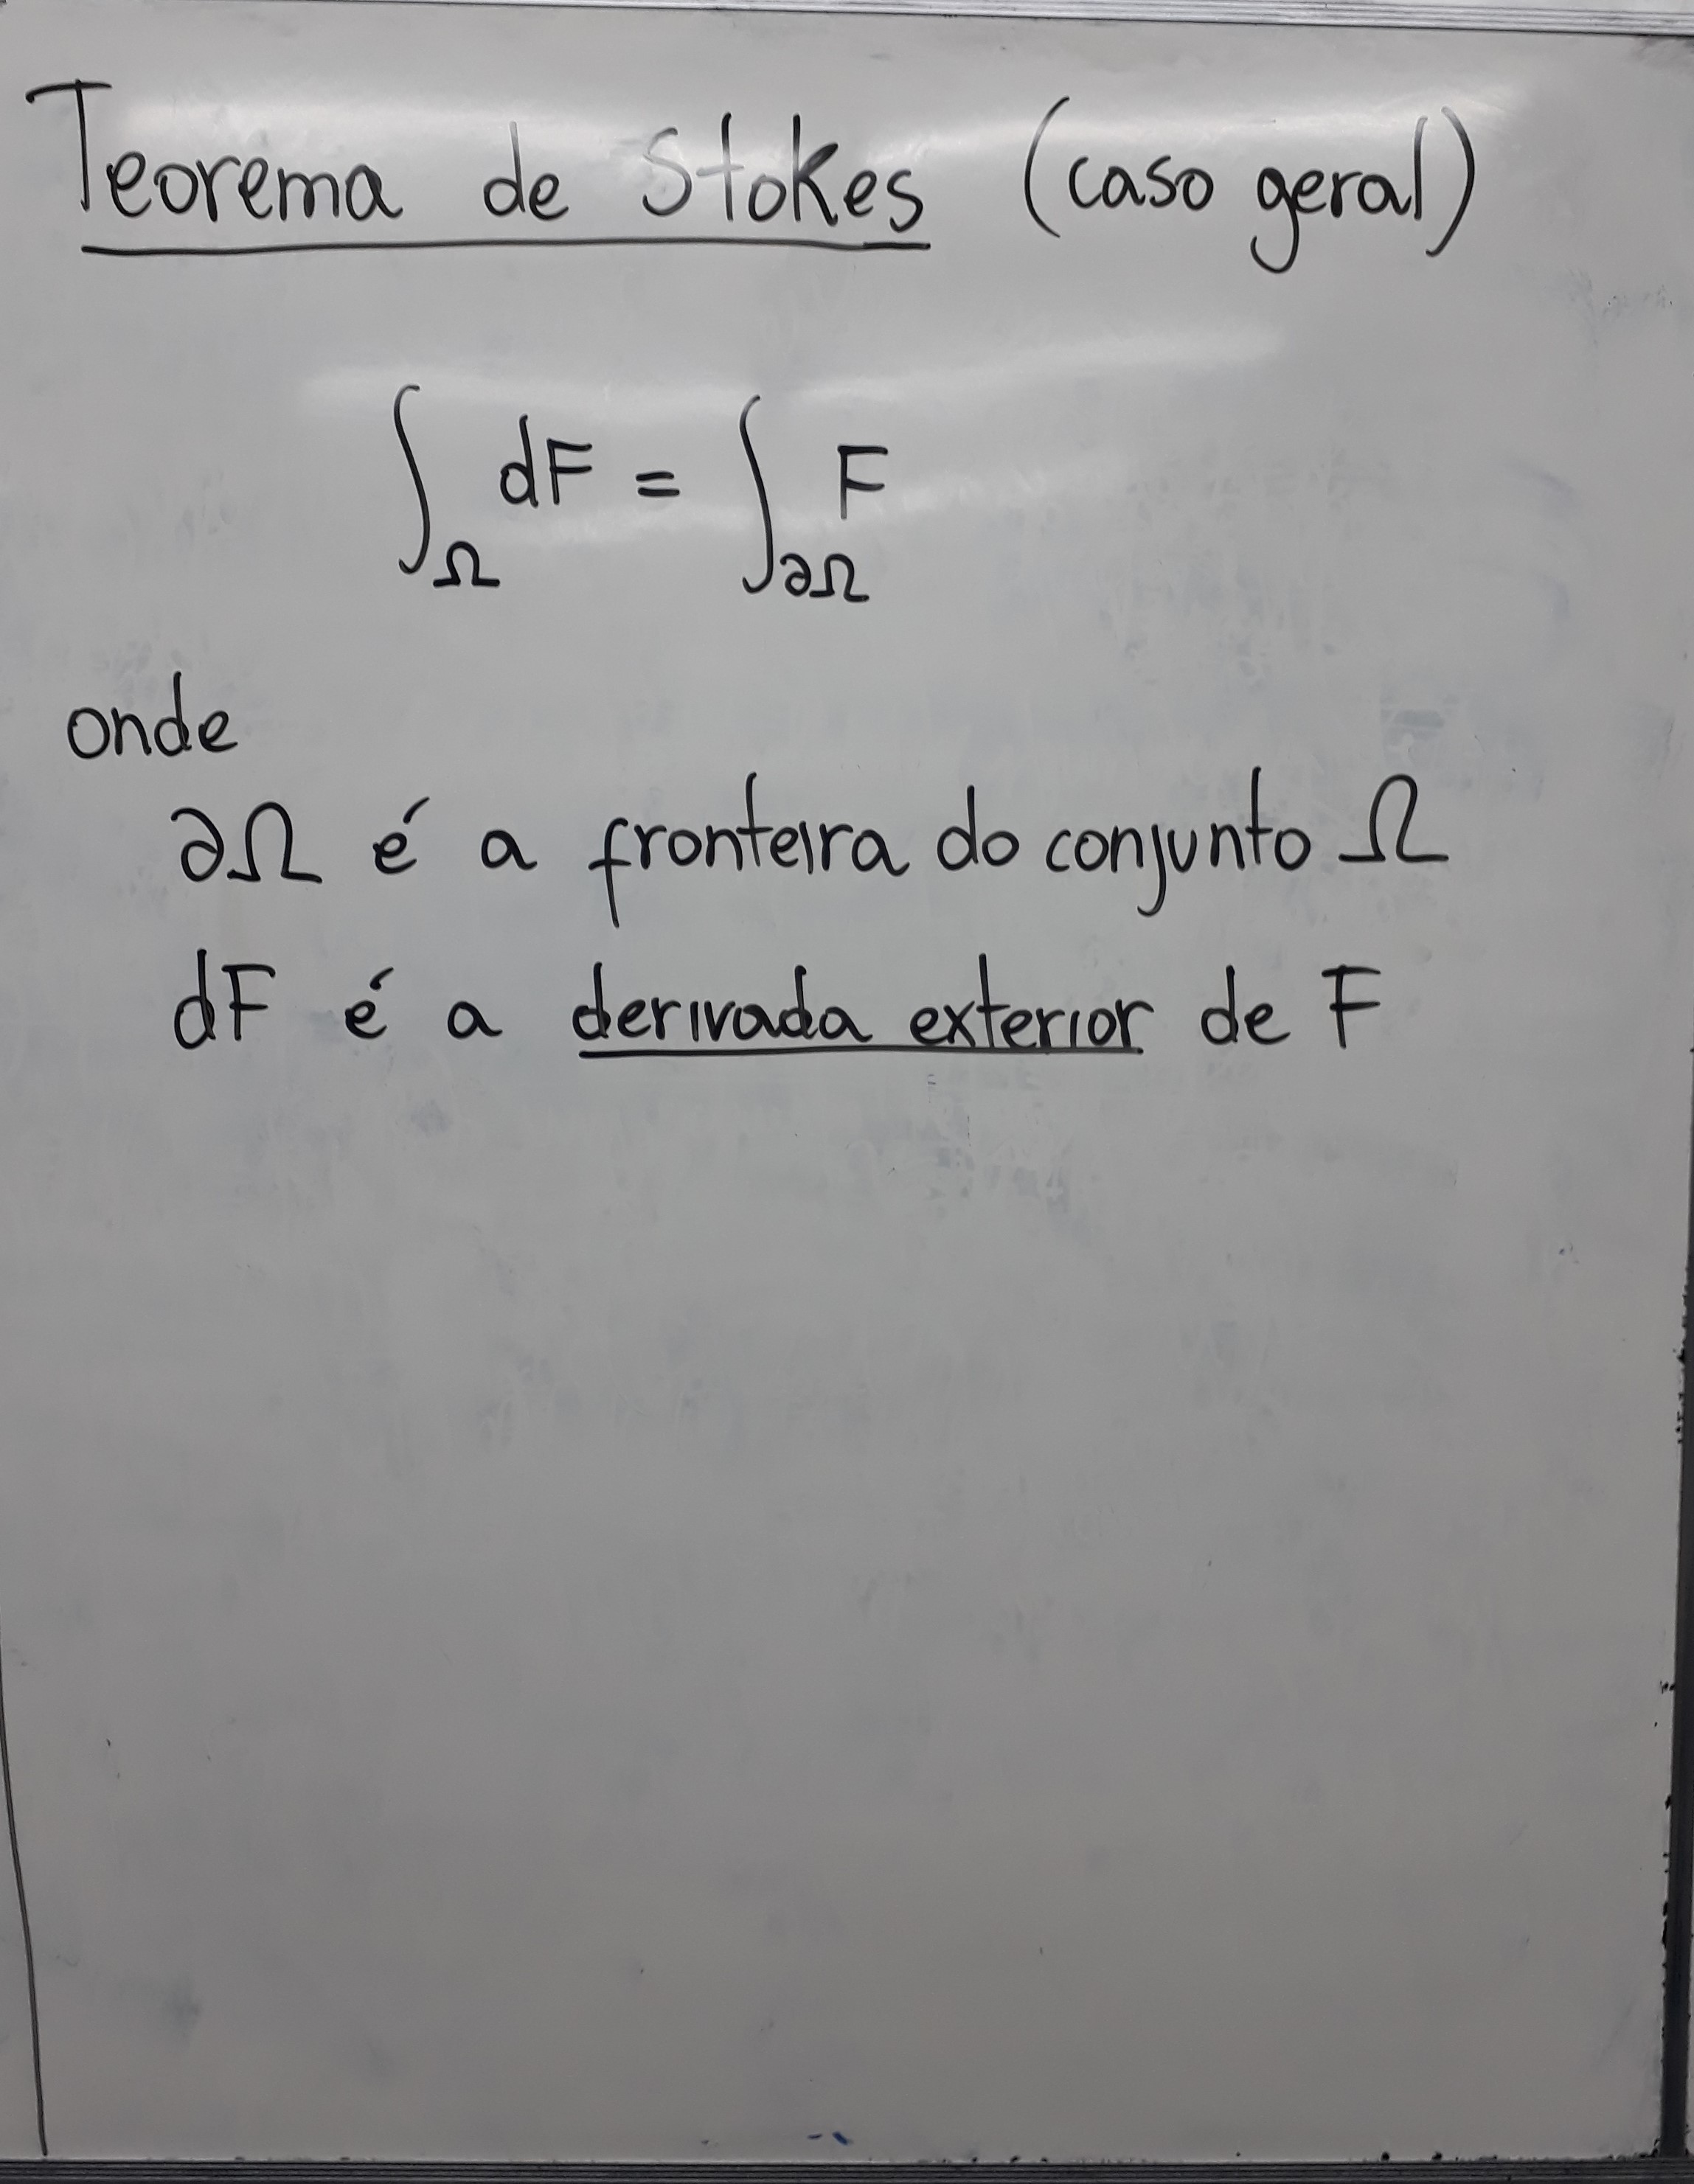 Teorema de Stokes (caso geral)
∫_Ω dF = ∫_∂Ω F
onde
∂Ω é a fronteira do conjunto Ω
dF é a derivada exterior de F